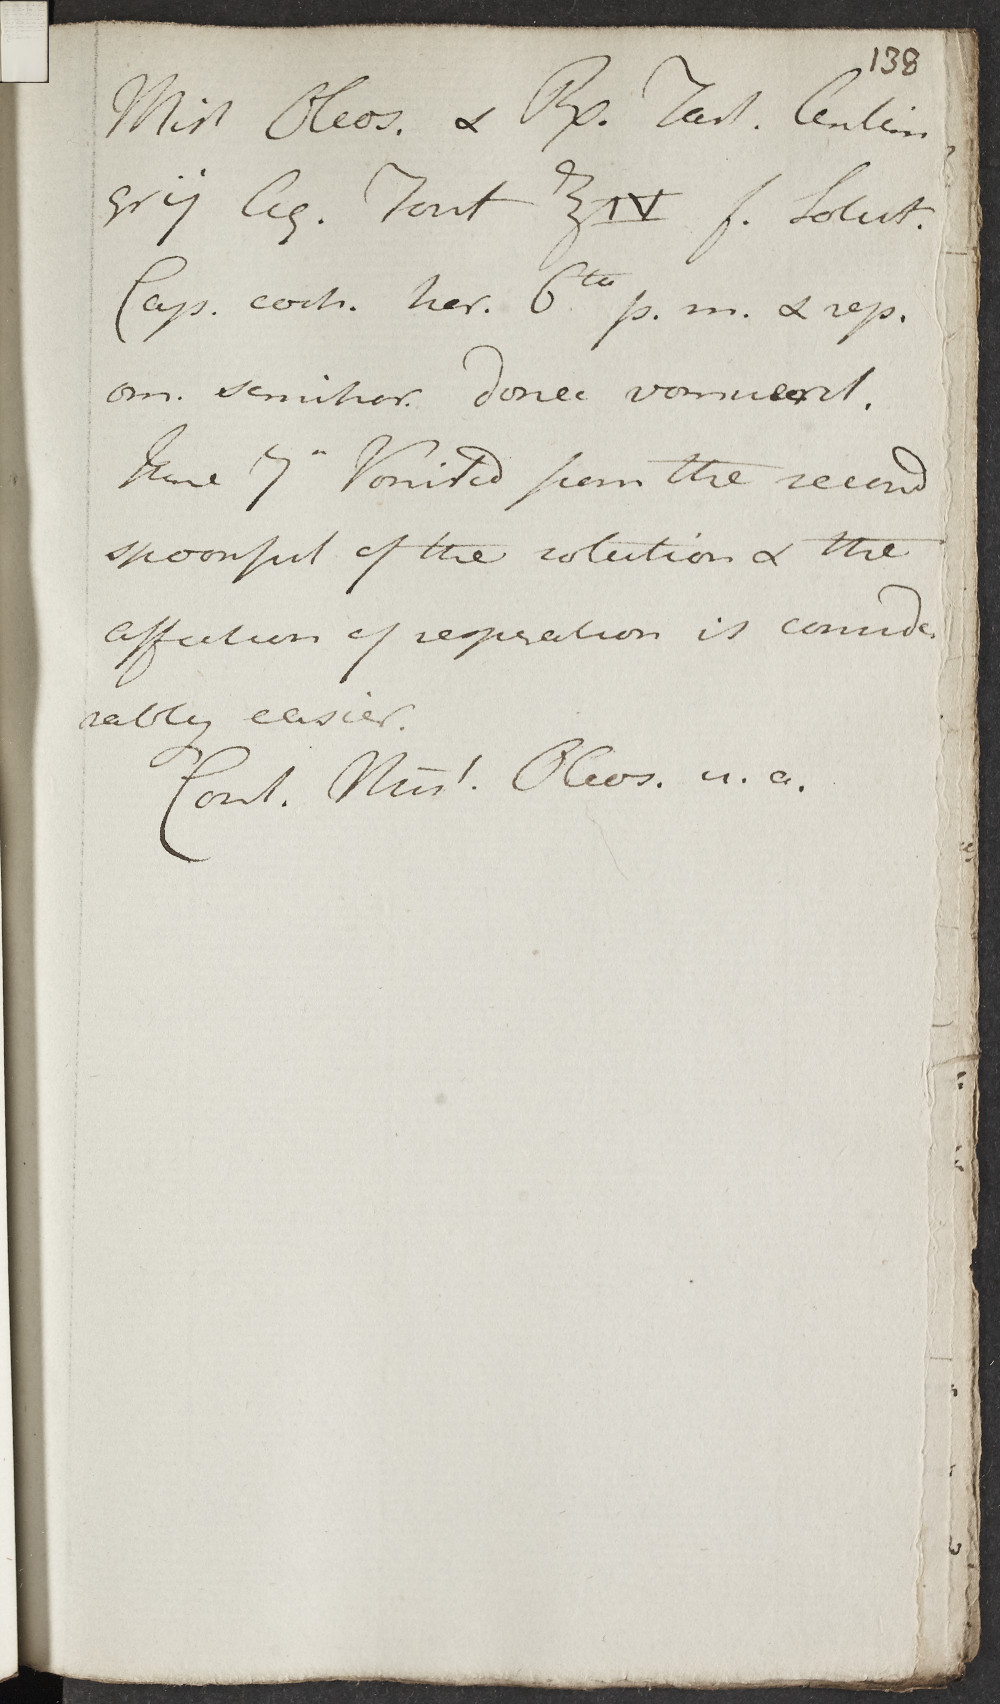 138
Mist Oleos. & Rx. Tart. Antim
grij Aq. Font ℥IV f. Solut.
Cap. coch. hor. 6ta p. m. & rep.
om. semihor. donec vomuerit.
June 7" Vomited from the second
spoonful of the solution & the
affection of respiration is conside
rably easier.
Cont. Mist. Oleos. u. a.